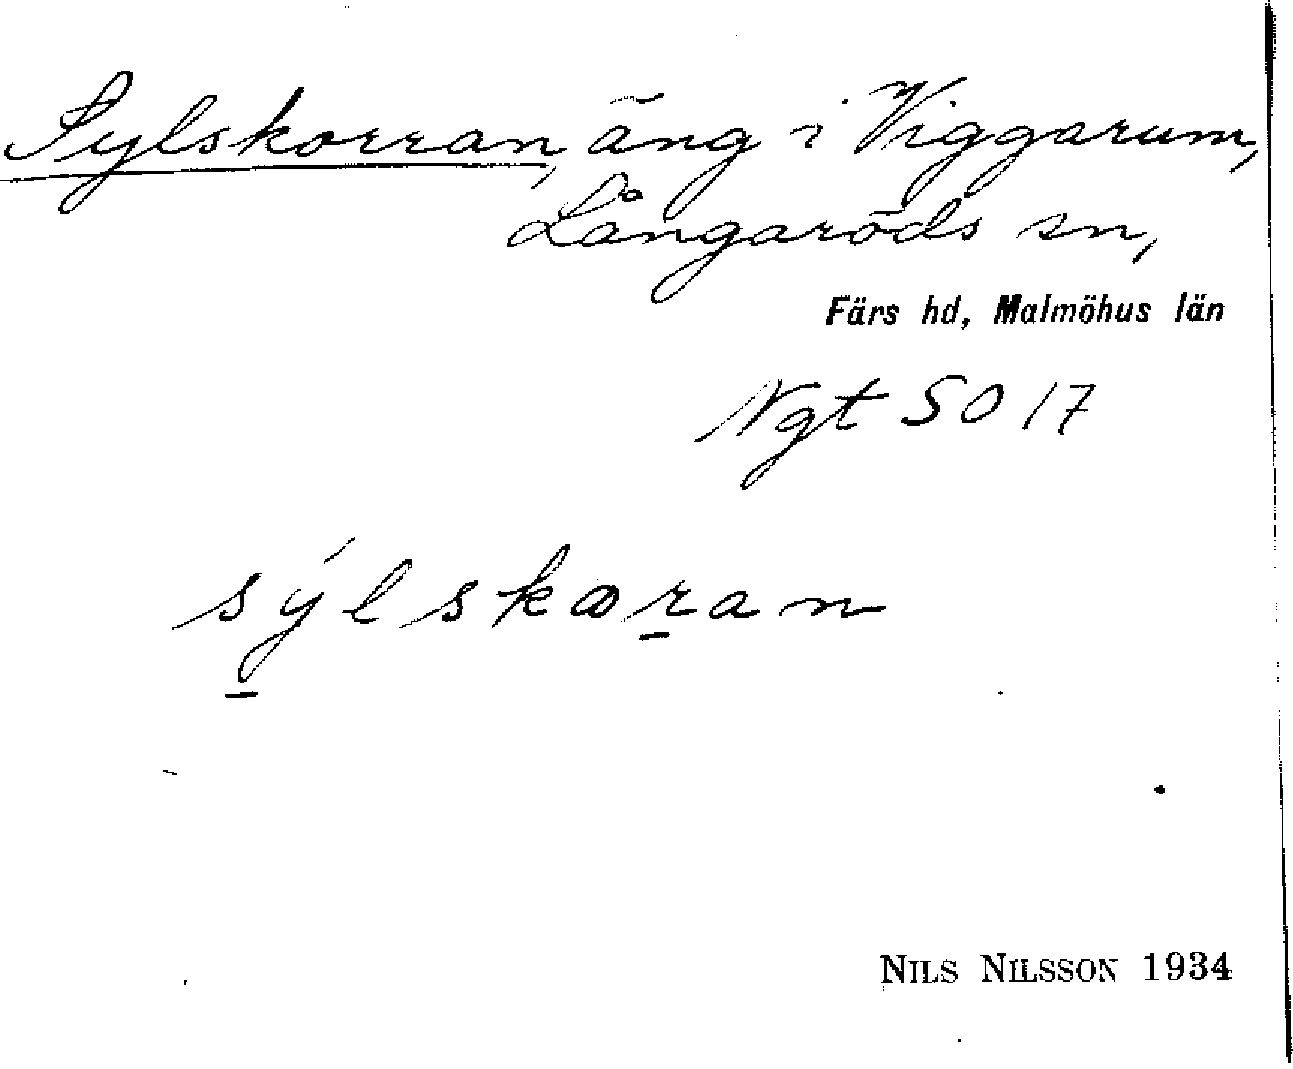 Sylskorran, äng i Viggarum,
Långaröds sn,
Färs hd, Malmöhus län
Ngt SO 17
sýlskꝏran
NILS NILSSON 1934